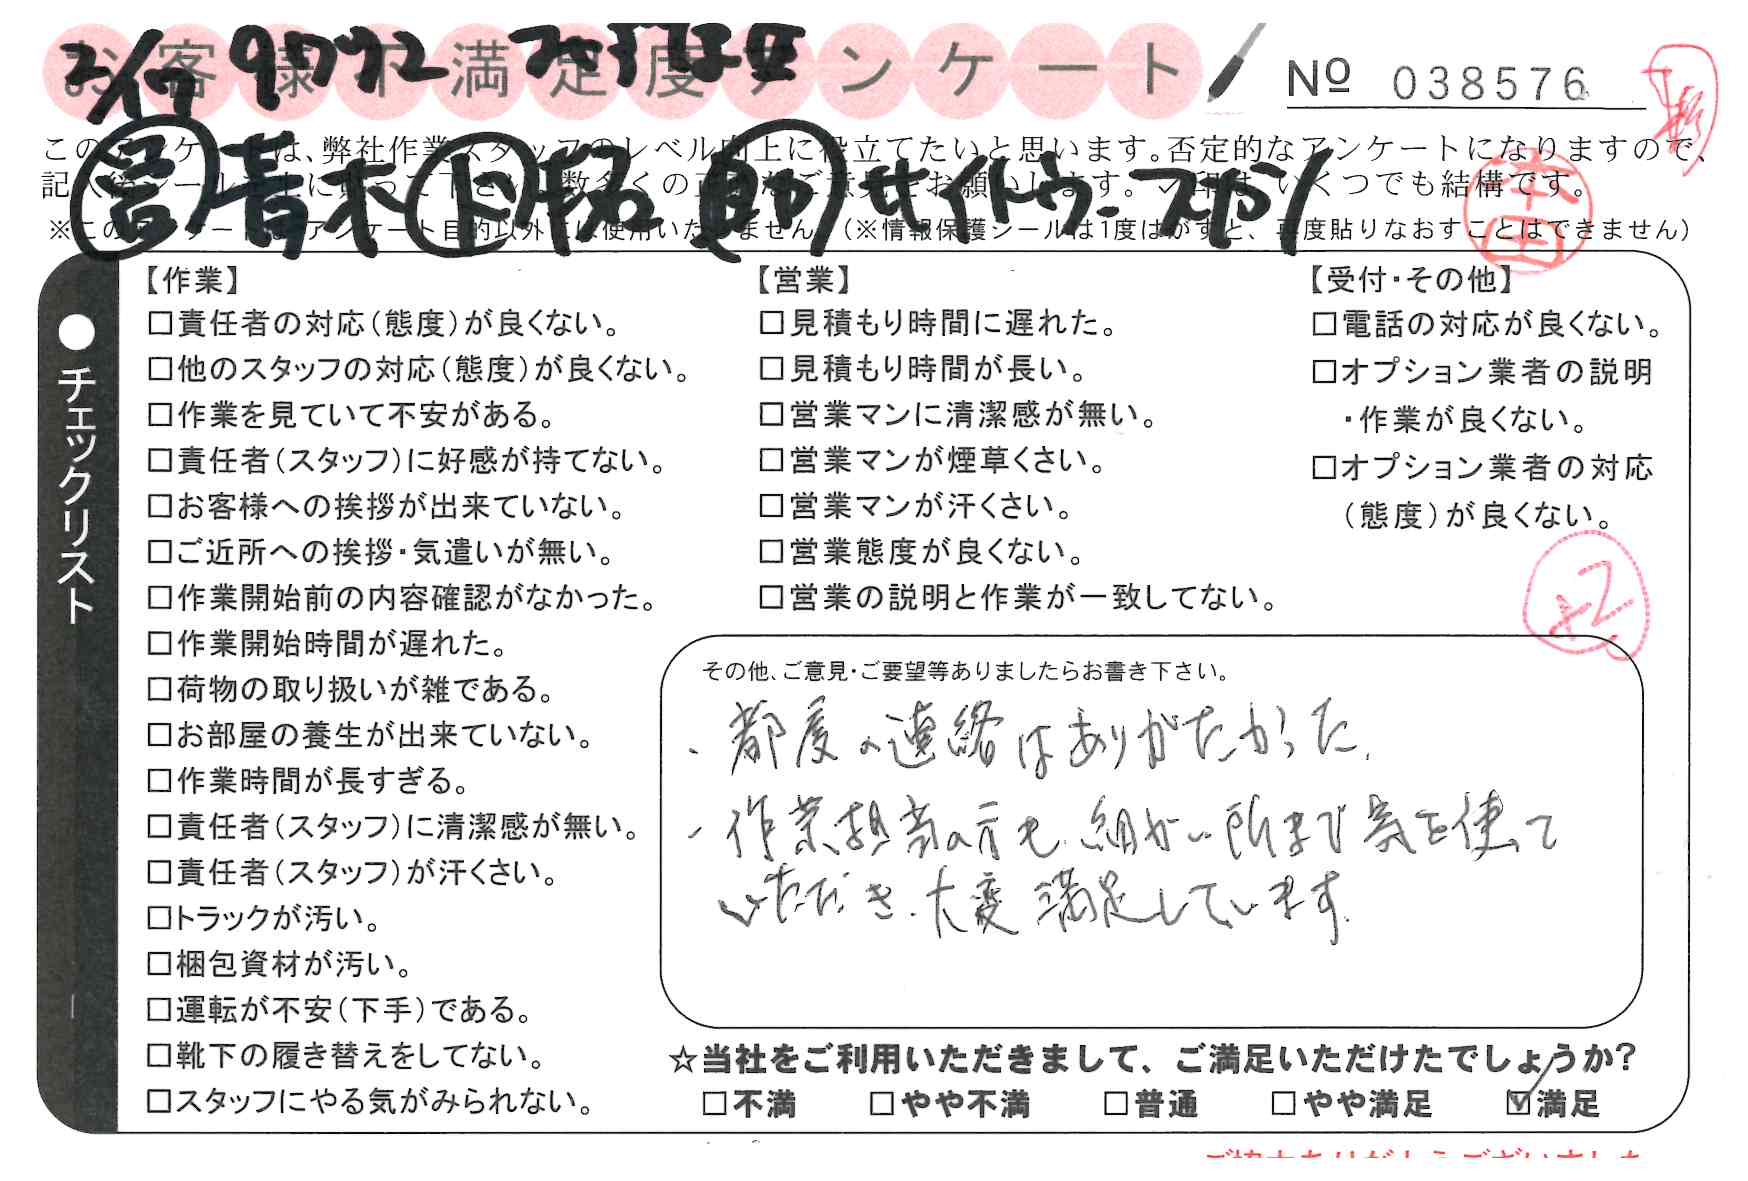 お客様不満足度アンケート
№ 038576
2/17
このアンケートは、弊社作業スタッフのレベル向上に役立てたいと思います。否定的なアンケートになりますので、
記入後シールを上に貼って下さい。数多くの正直なご意見をお願いします。✓印は、いくつでも結構です。
営 青木 助 サイトウ
※このアンケートは、アンケート目的以外には使用いたしません。（※情報保護シールは1度はがすと、再度貼りなおすことはできません）
●チェックリスト
【作業】
□責任者の対応（態度）が良くない。
□他のスタッフの対応（態度）が良くない。
□作業を見ていて不安がある。
□責任者（スタッフ）に好感が持てない。
□お客様への挨拶が出来ていない。
□ご近所への挨拶・気遣いが無い。
□作業開始前の内容確認がなかった。
□作業開始時間が遅れた。
□荷物の取り扱いが雑である。
□お部屋の養生が出来ていない。
□作業時間が長すぎる。
□責任者（スタッフ）に清潔感が無い。
□責任者（スタッフ）が汗くさい。
□トラックが汚い。
□梱包資材が汚い。
□運転が不安（下手）である。
□靴下の履き替えをしてない。
□スタッフにやる気がみられない。
【営業】
□見積もり時間に遅れた。
□見積もり時間が長い。
□営業マンに清潔感が無い。
□営業マンが煙草くさい。
□営業マンが汗くさい。
□営業態度が良くない。
□営業の説明と作業が一致してない。
【受付・その他】
□電話の対応が良くない。
□オプション業者の説明
・作業が良くない。
□オプション業者の対応
（態度）が良くない。
その他、ご意見・ご要望等ありましたらお書き下さい。
・都度の連絡はありがたかった。
・作業担当の方も、細かい所まで気を使って
いただき、大変満足しています。
☆当社をご利用いただきまして、ご満足いただけたでしょうか？
□不満 □やや不満 □普通 □やや満足 ☑満足
ご協力ありがとうございました